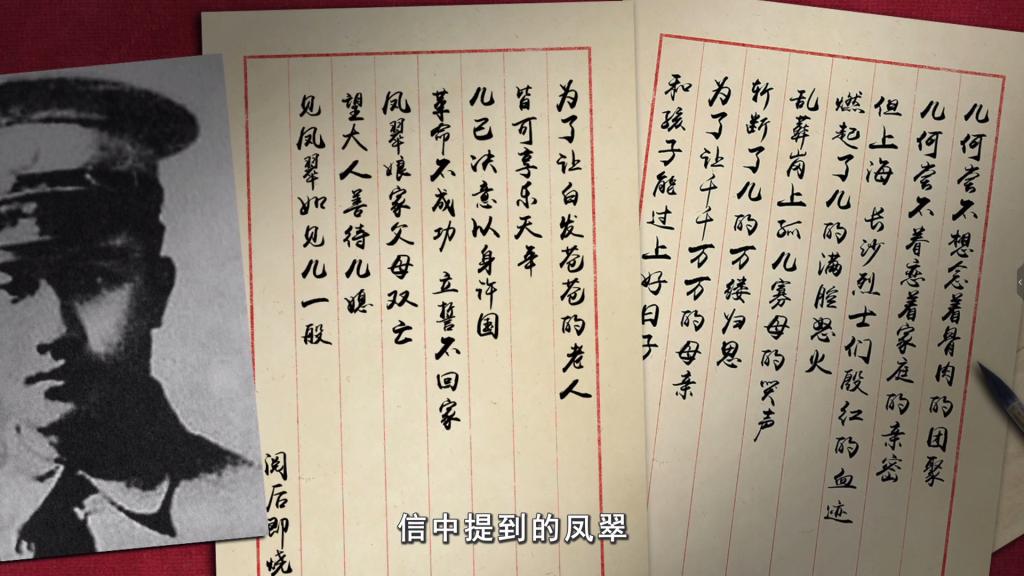 几何尝不想念着骨肉的团聚
几何尝不着恋着家庭的亲密
但上海 长沙烈士们殷红的血迹
燃起了儿的满腔怒火
乱葬岗上孤儿寡母的哭声
斩断了儿的万缕归思
为了让千千万万的母亲
和孩子能过上好日子
为了让白发苍苍的老人
皆可享乐天年
儿已决意以身许国
革命不成功 立誓不回家
凤翠娘家父母双亡
望大人善待儿媳
见凤翠如见儿一般
阅后即烧
信中提到的凤翠